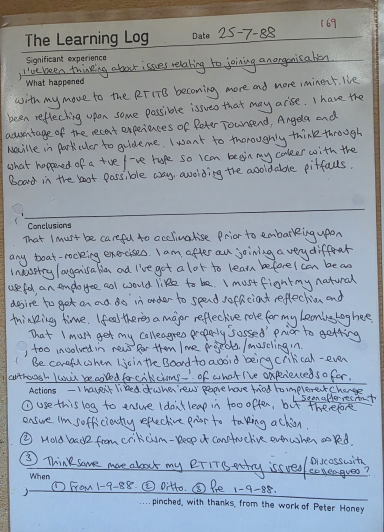 169
The Learning Log Date 25-7-88
Significant experience
I've been thinking about issues relating to joining an organisation.
What happened
With my move to the RTITB becoming more and more iminent. I've
been reflecting upon some possible issues that may arise. I have the
advantage of the recent experiences of Peter Townsend, Angela and
Neville in particular to guide me. I want to thoroughly think through
what happened of a +ve/-ve type so I can begin my career with the
Board in the best possible way, avoiding the avoidable pitfalls.
Conclusions
That I must be careful to acclimatise prior to embarking upon
any boat-rocking exercises. I am after all joining a very different
industry/organisation and I've got a lot to learn before I can be as
useful an employee as I would like to be. I must fight my natural
desire to get on and do in order to spend sufficient reflection and
thinking time. I feel there's a major reflective role for my Learning Log here.
That I must get my colleagues properly 'sossed' prior to getting
too involved in new for them/me projects/muscling in.
Be careful when I join the Board to avoid being critical - even
although I will be asked for criticisms - of what I've experienced so far.
Actions - I haven't liked it when new people have tried to implement change
so soon after recruit
① Use this log to ensure I don't leap in too often, but therefore
ensure I'm sufficiently reflective prior to taking action.
② Hold back from criticism - keep it constructive when asked.
③ Think some more about my RTITB entry issues/Discuss with colleagues?
When
① From 1-9-88. ② Ditto. ③ Pre 1-9-88.
....pinched, with thanks, from the work of Peter Honey